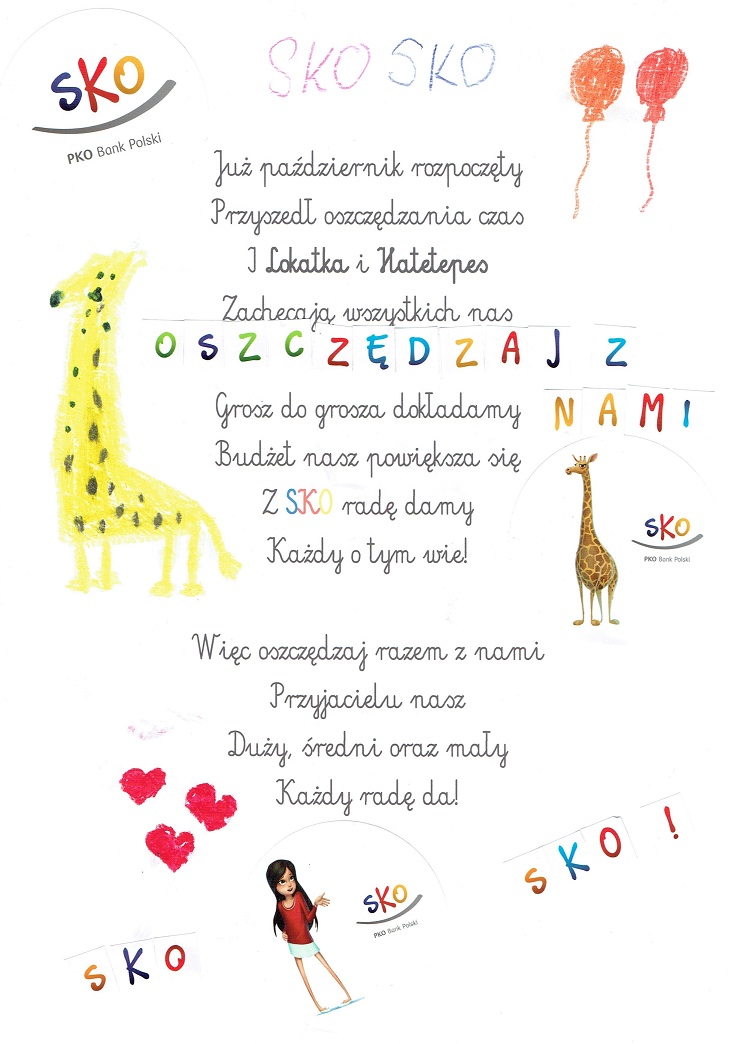 SKO
PKO Bank Polski
SKO SKO
Już październik rozpoczęty
Przyszedł oszczędzania czas
I Lokatka i Hatetepes
Zachęcają wszystkich nas
OSZCZĘDZAJ Z
NAMI
Grosz do grosza dokładamy
Budżet nasz powiększa się
Z SKO radę damy
Każdy o tym wie!
SKO
PKO Bank Polski
Więc oszczędzaj razem z nami
Przyjacielu nasz
Duży, średni oraz mały
Każdy radę da!
SKO!
SKO
PKO Bank Polski
SKO